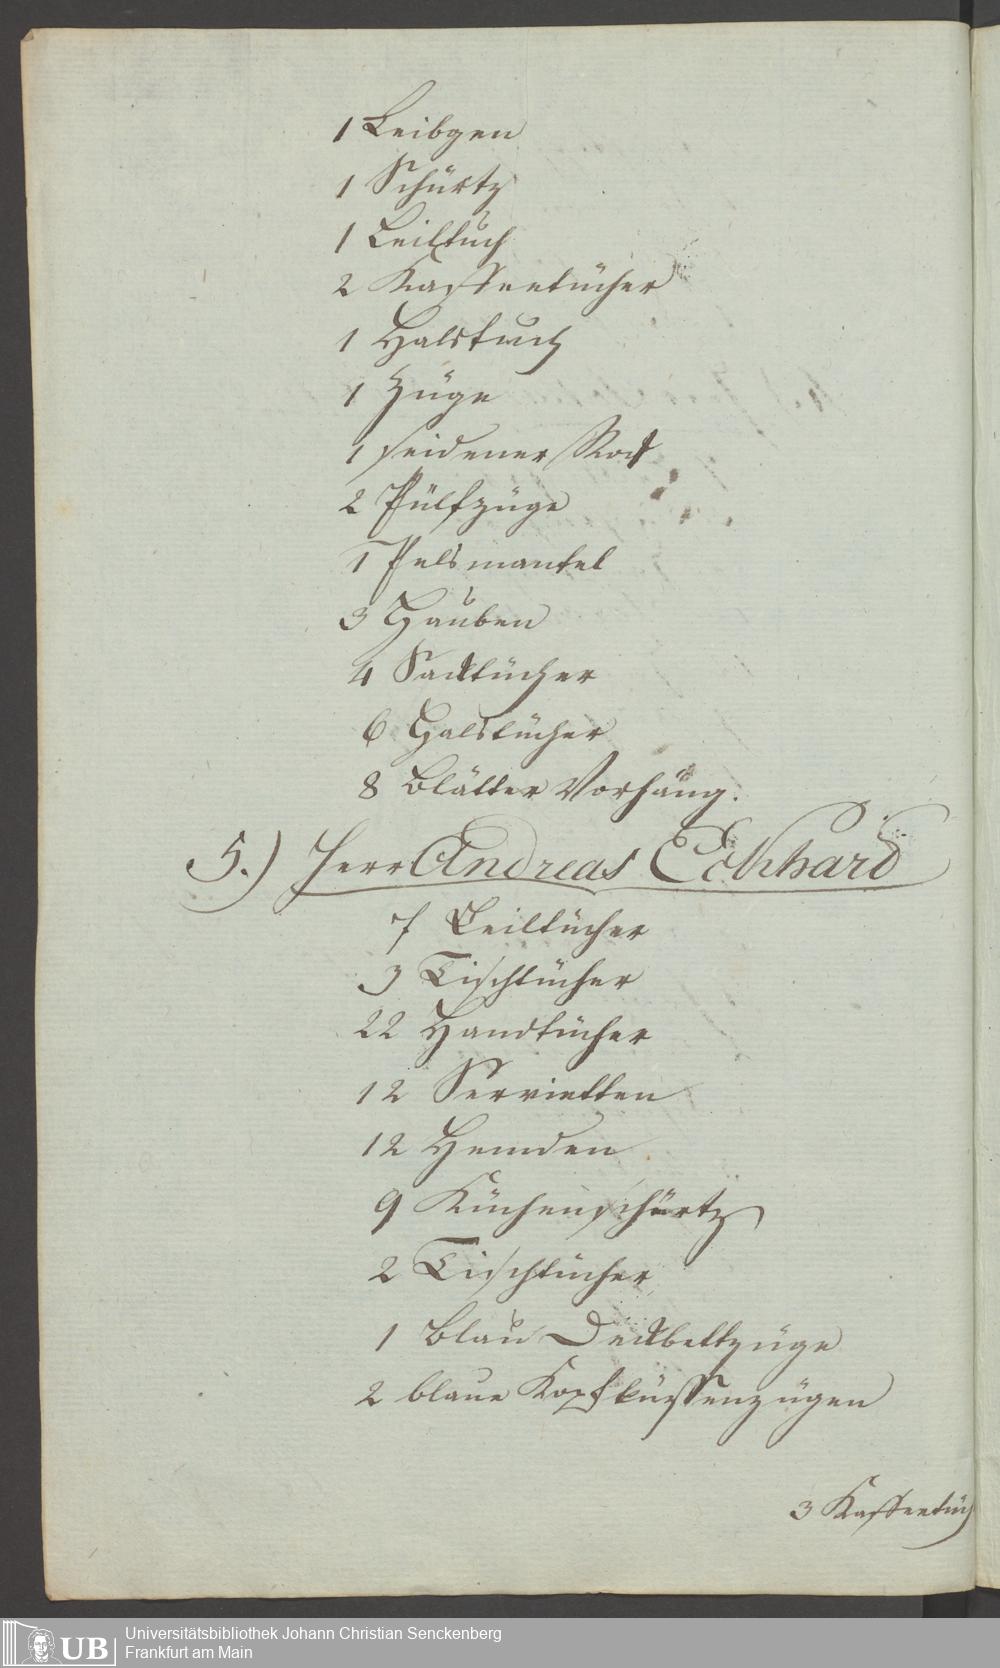 1 Leibgen
1 Schürtz
1 Leiltuch
2 Kaffeetücher
1 Halstuch
1 Züge
1 seidener Rock
2 Pülfzüge
1 Pelsmantel
3 Hauben
4 Sacktücher
6 Halstücher
8 Blätter Vorhäng.
5.) Herr Andreas Eckhard
7 Leiltücher
3 Tischtücher
22 Handtücher
12 Servietten
12 Hemden
9 Küchenschürtz
2 Tischtücher
1 blau Deckbettzüge
2 blaue Kopfküssenzügen
3 Kaffeetüch
UB
Universitätsbibliothek Johann Christian Senckenberg
Frankfurt am Main